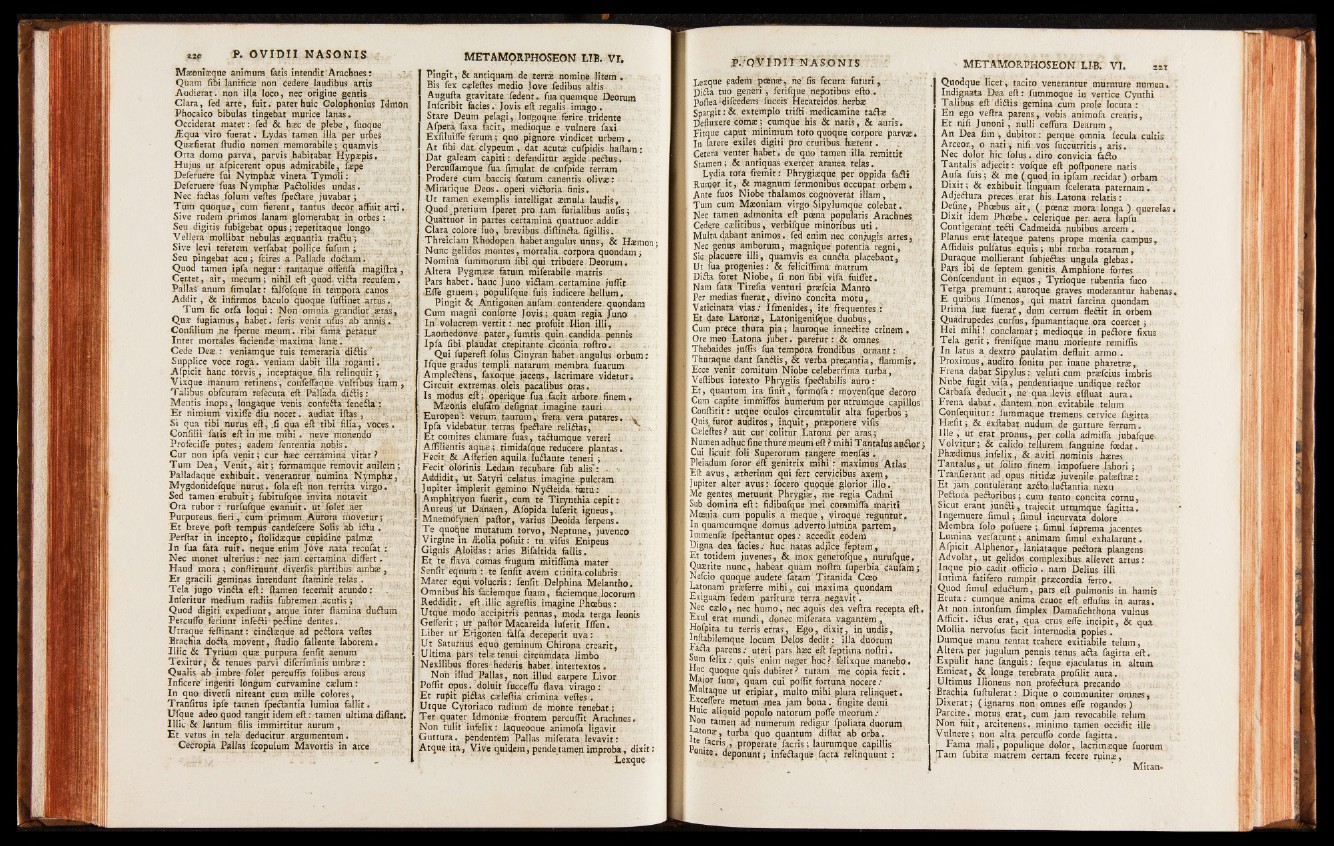 220 P. OVIDII NASONIS
Mæoniæque animum fatis intendit Arachnes:
Quam ſibi lanificæ non cedere laudibus artis
Audierat. non illa loco, nec origine gentis
Clara, ſed arte, fuit. pater huic Colophonius Idmon
Phocaico bibulas tingebat murice lanas.
Occiderat mater: ſed & hæc de plebe, ſuoque
Æqua viro fuerat. Lydas tamen illa per urbes
Quæſierat ſtudio nomen memorabile; quamvis
Orta domo parva, parvis habitabat Hypæpis.
Hujus ut aſpicerent opus admirabile, ſæpe
Deſeruere ſui Nymphæ vineta Tymoli:
Deſeruere ſuas Nymphæ Pactolides undas.
Nec factas ſolum veſtes ſpectare juvabat;
Tum quoque, cum fierent, tantus decor affuit arti.
Sive rudem primos lanam glomerabat in orbes:
Seu digitis ſubigebat opus; repetitaque longo
Vellera mollibat nebulas æquantia tractu;
Sive levi teretem verſabat pollice fuſum;
Seu pingebat acu; ſcires a Pallade doctam.
Quod tamen ipſa negat: tantaque offenſa magiſtra,
Certet, ait, mecum: nihil eſt quod victa recuſem.
Pallas anum ſimulat: falſoſque in tempora canos
Addit, & infirmos baculo quoque ſuſtinet artus.
Tum ſic orſa loqui: Non omnia grandior ætas,
Quæ fugiamus, habet. ſeris venit uſus ab annis.
Conſilium ne ſperne meum. tibi fama petatur
Inter mortales faciendæ maxima lanæ.
Cede Deæ: veniamque tuis temeraria dictis
Supplice voce roga. veniam dabit illa roganti.
Aſpicit hanc torvis, inceptaque fila relinquit;
Vixque manum retinens, confeſſaque vultibus iram,
Talibus obſcuram reſecuta eſt Pallada dictis:
Mentis inops, longaque venis confecta ſenecta:
Et nimium vixiſſe diu nocet. audiat iſtas,
Si qua tibi nurus eſt, ſi qua eſt tibi filia, voces.
Conſilii ſatis eſt in me mihi. neve monendo
Profeciſſe putes; eadem ſententia nobis.
Cur non ipſa venit; cur hæc certamina vitat?
Tum Dea, Venit, ait; formamque removit anilem;
Palladaque exhibuit. venerantur numina Nymphæ,
Mygdonideſque nurus. ſola eſt non territa virgo.
Sed tamen erubuit; ſubituſque invita notavit
Ora rubor: rurſuſque evanuit. ut ſolet aer
Purpureus fieri, cum primum Aurora movetur;
Et breve poſt tempus candeſcere Solis ab ictu.
Perſtat in incepto, ſtolidæque cupidine palmæ
In ſua fata ruit. neque enim Jove nata recuſat:
Nec monet ulterius: nec jam certamina differt.
Haud mora; conſtituunt diverſis partibus ambæ,
Et gracili geminas intendunt ſtamine telas.
Tela jugo vincta eſt: ſtamen ſecernit arundo:
Inſeritur medium radiis ſubtemen acutis;
Quod digiti expediunt, atque inter ſtamina ductum
Percuſſo feriunt infecti pectine dentes.
Utraque feſtinant: cinctæque ad pectora veſtes
Brachia docta movent, ſtudio fallente laborem.
Illic & Tyrium quæ purpura ſenſit aenum
Texitur, & tenues parvi diſcriminis umbræ:
Qualis ab imbre ſolet percuſſis ſolibus arcus
Inficere ingenti longum curvamine cælum:
In quo diverſi niteant cum mille colores,
Tranſitus ipſe tamen ſpectantia lumina fallit.
Uſque adeo quod tangit idem eſt: tamen ultima diſtant.
Illic & lentum filis immittitur aurum
Et vetus in tela deducitur argumentum.
Cecropia Pallas ſcopulum Mavortis in arce
METAMORPHOSEON LIB. VI.
Pingit, & antiquam de terræ nomine litem.
Bis ſex cæleſtes medio Jove ſedibus altis
Auguſta gravitate ſedent. ſua quemque Deorum
Inſcribit facies. Jovis eſt regalis imago.
Stare Deum pelagi, longoque ferire tridente
Aſpera ſaxa facit, medioque e vulnere ſaxi
Exſiluiſſe ferum; quo pignore vindicet urbem.
At ſibi dat clypeum, dat acutæ cuſpidis haſtam:
Dat galeam capiti: defenditur ægide pectus.
Percuſſamque ſua ſimulat de cuſpide terram
Prodere cum baccis fœtum canentis olivæ:
Mirarique Deos. operi victoria finis.
Ut tamen exemplis intelligat æmula laudis,
Quod pretium ſperet pro tam furialibus auſis;
Quattuor in partes certamina quattuor addit
Clara colore ſuo, brevibus diſtincta ſigillis.
Threiciam Rhodopen habet angulus unus, & Hæmon;
Nunc gelidos montes, mortalia corpora quondam;
Nomina ſummorum ſibi qui tribuere Deorum.
Altera Pygmææ fatum miſerabile matris
Pars habet. hanc Juno victam certamine juſſit
Eſſe gruem; populiſque ſuis indicere bellum.
Pingit & Antigonen auſam contendere quondam
Cum magni conſorte Jovis; quam regia Juno
In volucrem vertit: nec profuit Ilion illi,
Laomedonve pater, ſumtis quin candida pennis
Ipſa ſibi plaudat crepitante ciconia roſtro.
Qui ſupereſt ſolus Cinyran habet angulus orbum:
Iſque gradus templi natarum membra ſuarum
Amplectens, ſaxoque jacens, lacrimare videtur.
Circuit extremas oleis pacalibus oras.
Is modus eſt; operique ſua facit arbore finem.
Mæonis eluſam deſignat imagine tauri
Europen: verum taurum, freta vera putares.
Ipſa videbatur terras ſpectare relictas,
Et comites clamare ſuas, tactumque vereri
Aſſilientis aquæ; timidaſque reducere plantas.
Fecit & Aſterien aquila luctante teneri;
Fecit olorinis Ledam recubare ſub alis:
Addidit, ut Satyri celatus imagine pulcram
Jupiter implerit gemino Nycteida fœtu:
Amphitryon fuerit, cum te Tirynthia cepit:
Aureus ut Danaen, Aſopida luſerit igneus,
Mnemoſynen paſtor, varius Deoida ſerpens.
Te quoque mutatum torvo, Neptune, juvenco
Virgine in Æolia poſuit: tu viſus Enipeus
Gignis Aloïdas: aries Biſaltida fallis.
Et te flava comas frugum mitiſſima mater
Senſit equum: te ſenſit avem crinita colubris
Mater equi volucris: ſenſit Delphina Melantho.
Omnibus his faciemque ſuam, faciemque locorum
Reddidit. eſt illic agreſtis imagine Phœbus:
Utque modo accipitris pennas, modo terga leonis
Geſſerit; ut paſtor Macareida luſerit Iſſen.
Liber ut Erigonen falſa deceperit uva:
Ut Saturnus equo geminum Chirona crearit,
Ultima pars telæ tenui circumdata limbo
Nexilibus flores hederis habet intertextos.
Non illud Pallas, non illud carpere Livor
Poſſit opus. doluit ſucceſſu flava virago:
Et rupit pictas cæleſtia crimina veſtes.
Utque Cytoriaco radium de monte tenebat;
Ter quater Idmoniæ frontem percuſſit Arachnes.
Non tulit infelix: laqueoque animoſa ligavit
Guttura. pendentem Pallas miſerata levavit:
Atque ita, Vive quidem, pende tamen improba, dixit:
Lexque
P. OVIDII NASONIS
Lexque eadem pœnæ, ne ſis ſecura futuri,
Dicta tuo generi, ſeriſque nepotibus eſto.
Poſtea diſcedens ſuccis Hecateïdos herbæ
Spargit: & extemplo triſti medicamine tactæ
Defluxere comæ; cumque his & naris, & auris.
Fitque caput minimum toto quoque corpore parvæ.
In latere exiles digiti pro cruribus hærent.
Cetera venter habet. de quo tamen illa remittit
Stamen; & antiquas exercet aranea telas.
Lydia tota fremit: Phrygiæque per oppida facti
Rumor it, & magnum ſermonibus occupat orbem.
Ante ſuos Niobe thalamos cognoverat illam,
Tum cum Mæoniam virgo Sipylumque colebat.
Nec tamen admonita eſt pœna popularis Arachnes
Cedere cælitibus, verbiſque minoribus uti.
Multa dabant animos. ſed enim nec conjugis artes,
Nec genus amborum, magnique potentia regni,
Sic placuere illi, quamvis ea cuncta placebant,
Ut ſua progenies: & feliciſſima matrum
Dicta foret Niobe, ſi non ſibi viſa fuiſſet.
Nam ſata Tireſia venturi præſcia Manto
Per medias fuerat, divino concita motu,
Vaticinata vias: Iſmenides, ite frequentes:
Et date Latonæ, Latonigeniſque duobus,
Cum prece thura pia; lauroque innectite crinem.
Ore meo Latona jubet. paretur: & omnes
Thebaides juſſis ſua tempora frondibus ornant:
Thuraque dant ſanctis, & verba precantia, flammis.
Ecce venit comitum Niobe celeberrima turba,
Veſtibus intexto Phrygiis ſpectabilis auro:
Et, quantum ira ſinit, formoſa: movenſque decoro
Cum capite immiſſos humerum per utrumque capillos
Conſtitit: utque oculos circumtulit alta ſuperbos;
Quis furor auditos, inquit, præponere viſis
Cæleſtes? aut cur colitur Latona per aras;
Numen adhuc ſine thure meum eſt? mihi Tantalus auctor;
Cui licuit ſoli Superorum tangere menſas.
Pleiadum ſoror eſt genitrix mihi: maximus Atlas
Eſt avus, ætherium qui fert cervicibus axem,
Jupiter alter avus: ſocero quoque glorior illo.
Me gentes metuunt Phrygiæ, me regia Cadmi
Sub domina eſt: fidibuſque mei commiſſa mariti
Mœnia cum populis a meque, viroque reguntur.
In quamcumque domus adverto lumina partem,
Immenſæ ſpectantur opes: accedit eodem
Digna dea facies: huc natas adjice ſeptem,
Et totidem juvenes, & mox generoſque, nuruſque.
Quærite nunc, habeat quam noſtra ſuperbia cauſam;
Neſcio quoque audete ſatam Titanida Cœo
Latonam præferre mihi, cui maxima quondam
Exiguam ſedem parituræ terra negavit.
Nec cælo, nec humo, nec aquis dea veſtra recepta eſt.
Exul erat mundi, donec miſerata vagantem,
Hoſpita tu terris erras, Ego, dixit, in undis,
Inſtabilemque locum Delos dedit: illa duorum
Facta parens: uteri pars hæc eſt ſeptima noſtri.
Sum felix: quis enim neget hoc? felixque manebo.
Hoc quoque quis dubitet? tutam me copia fecit.
Major ſum, quam cui poſſit fortuna nocere:
Multaque ut eripiat, multo mihi plura relinquet.
Exceſſere metum mea jam bona. fingite demi
Huic aliquid populo natorum poſſe meorum:
Non tamen ad numerum redigar ſpoliata duorum
Latonæ, turba quo quantum diſtat ab orba.
Ite ſacris, properate ſacris: laurumque capillis
Ponite. deponunt; infectaque ſacra relinquunt:
METAMORPHOSEON LIB. VI. 221
Quodque licet, tacito venerantur murmure numen.
Indignata Dea eſt: ſummoque in vertice Cynthi
Talibus eſt dictis gemina cum prole locuta:
En ego veſtra parens, vobis animoſa creatis,
Et niſi Junoni, nulli ceſſura Dearum,
An Dea ſim, dubitor: perque omnia ſecula cultis
Arceor, o nati, niſi vos ſuccurritis, aris.
Nec dolor hic ſolus. diro convicia facto
Tantalis adjecit: voſque eſt poſtponere natis
Auſa ſuis; & me (quod in ipſam recidat) orbam
Dixit; & exhibuit linguam ſcelerata paternam.
Adjectura preces erat his Latona relatis:
Deſine, Phœbus ait, (pœnæ mora longa) querelas.
Dixit idem Phœbe. celerique per aera lapſu
Contigerant tecti Cadmeida nubibus arcem.
Planus erat lateque patens prope mœnia campus,
Aſſiduis pulſatus equis; ubi turba rotarum,
Duraque mollierant ſubjectas ungula glebas.
Pars ibi de ſeptem genitis Amphione fortes
Conſcendunt in equos, Tyrioque rubentia ſuco
Terga premunt; auroque graves moderantur habenas.
E quibus Iſmenos, qui matri ſarcina quondam
Prima ſuæ fuerat, dum certum flectit in orbem
Quadrupedes curſus, ſpumantiaque ora coercet;
Hei mihi! conclamat; medioque in pectore fixus
Tela gerit; freniſque manu moriente remiſſis
In latus a dextro paulatim defluit armo.
Proximus, audito ſonitu per inane pharetræ,
Frena dabat Sipylus: veluti cum præſcius imbris
Nube fugit viſa, pendentiaque undique rector
Carbaſa deducit, ne qua levis effluat aura.
Frena dabat. dantem non evitabile telum
Conſequitur: ſummaque tremens cervice ſagitta
Hæſit; & exſtabat nudum de gutture ferrum.
Ille, ut erat pronus, per colla admiſſa jubaſque
Volvitur; & calido tellurem ſanguine fœdat.
Phædimus infelix, & aviti nominis hæres
Tantalus, ut ſolito finem impoſuere labori;
Tranſierant ad opus nitidæ juvenile palæſtræ:
Et jam contulerant arcto luctantia nexu
Pectora pectoribus; cum tento concita cornu,
Sicut erant juncti, trajecit utrumque ſagitta.
Ingemuere ſimul; ſimul incurvata dolore
Membra ſolo poſuere; ſimul ſuprema jacentes
Lumina verſarunt; animam ſimul exhalarunt.
Aſpicit Alphenor, laniataque pectora plangens
Advolat, ut gelidos complexibus allevet artus:
Inque pio cadit officio. nam Delius illi
Intima fatifero rumpit præcordia ferro.
Quod ſimul eductum, pars eſt pulmonis in hamis
Eruta: cumque anima cruor eſt effuſus in auras.
At non intonſum ſimplex Damaſichthona vulnus
Afficit. ictus erat, qua crus eſſe incipit, & qua
Mollia nervoſus facit internodia poples.
Dumque manu tentat trahere exitiabile telum,
Altera per jugulum pennis tenus acta ſagitta eſt.
Expulit hanc ſanguis: ſeque ejaculatus in altum
Emicat, & longe terebrata proſilit aura.
Ultimus Ilioneus non profectura precando
Brachia ſuſtulerat: Dique o communiter omnes,
Dixerat; (ignarus non omnes eſſe rogandos)
Parcite. motus erat, cum jam revocabile telum
Non fuit, arcitenens. minimo tamen occidit ille
Vulnere; non alta percuſſo corde ſagitta.
Fama mali, populique dolor, lacrimæque ſuorum
Tam ſubitæ matrem certam fecere ruinæ,
Miran-